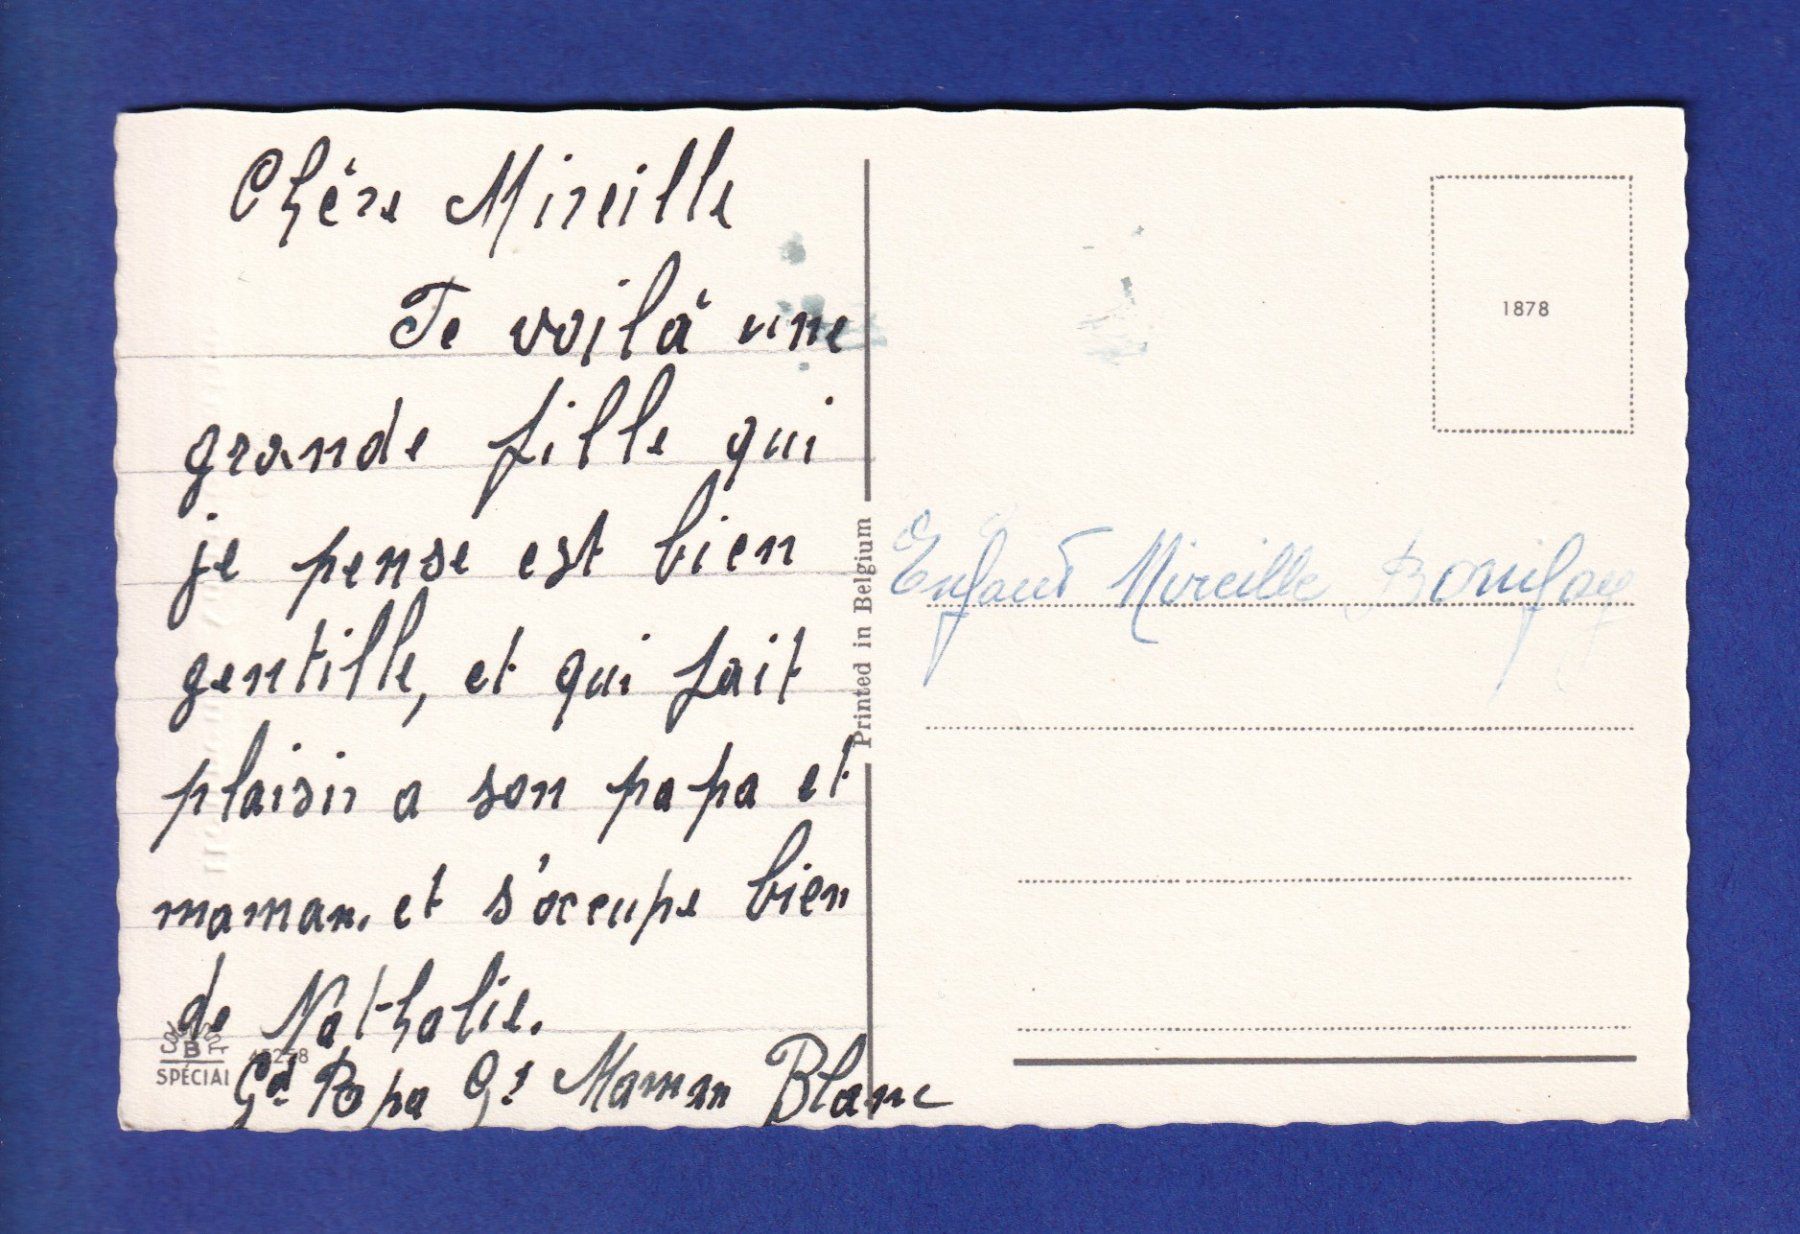 Chère Mireille
Te voilà une
grande fille qui
je pense est bien
gentille, et qui fait
plaisir a son papa et
maman. et s'occupe bien
de Nathalie.
Gd. Papa Gd Maman Blanc
B
SPÉCIAL
Printed in Belgium
1878
Enfant Mireille Bonifay